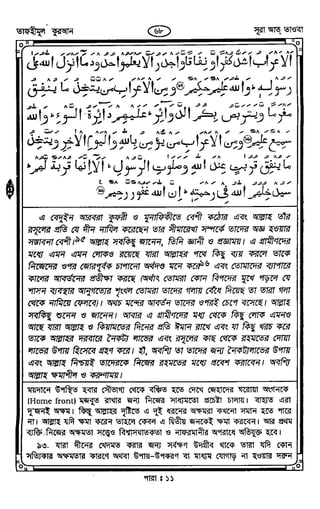 তাফহীমুল কুরআন
৬৮
সূরা আত্ তাওবা
اَلْاَعْرَابُ اَشَدُّ كُفْرًا وَّنِفَاقًا وَّاَجْدَرُ اَلَّا يَعْلَمُوْا حُدُوْدَ مَآ اَنْزَلَ اللهُ عَلٰى
رَسُوْلِهٖ ؕ وَاللهُ عَلِيْمٌ حَكِيْمٌ ۝ وَمِنَ الْاَعْرَابِ مَنْ يَّتَّخِذُ مَا يُنْفِقُ
مَغْرَمًا وَّيَتَرَبَّصُ بِكُمُ الدَّوَآئِرَ ؕ عَلَيْهِمْ دَآئِرَةُ السَّوْءِ ؕ وَاللهُ
سَمِيْعٌ عَلِيْمٌ ۝ وَمِنَ الْاَعْرَابِ مَنْ يُّؤْمِنُ بِاللهِ وَالْيَوْمِ الْاٰخِرِ وَيَتَّخِذُ
مَا يُنْفِقُ قُرُبٰتٍ عِنْدَ اللهِ وَصَلَوٰتِ الرَّسُوْلِ ؕ اَلَآ اِنَّهَا قُرْبَةٌ لَّهُمْ ؕ
سَيُدْخِلُهُمُ اللهُ فِيْ رَحْمَتِهٖ ؕ اِنَّ اللهَ غَفُوْرٌ رَّحِيْمٌ ۝
এ বেদুইন আরবরা কুফরী ও মুনাফিকীতে বেশী কঠোর এবং আল্লাহ তাঁর
রসূলের প্রতি যে দীন নাযিল করেছেন তার সীমারেখা সম্পর্কে তাদের অজ্ঞ হওয়ার
সম্ভাবনা বেশী। আল্লাহ সবকিছু জানেন, তিনি জ্ঞানী ও প্রজ্ঞাময়। এ গ্রামীণদের
মধ্যে এমন এমন লোকও রয়েছে যারা আল্লাহর পথে কিছু ব্যয় করলে তাকে
নিজেদের ওপর জোরপূর্বক চাপানো অর্থদণ্ড মনে করে এবং তোমাদের ব্যাপারে
কালের আবর্তনের প্রতীক্ষা করছে (অর্থাৎ তোমরা কোন বিপদের মুখে পড়লে যে
শাসন ব্যবস্থার আনুগত্যের শৃংখল তোমরা তাদের গলায় বেঁধে দিয়েছ তা তারা গলা
থেকে নামিয়ে ফেলবে)। অথচ মন্দের আবর্তন তাদের ওপরই চেপে বসেছে। আল্লাহ
সবকিছু শুনেন ও জানেন। আবার এ গ্রামীণদের মধ্যে কিছু লোক এমনও
আছে যারা আল্লাহ ও কিয়ামতের দিনের প্রতি ঈমান রাখে এবং যা কিছু খরচ করে
তাকে আল্লাহর দরবারে নৈকট্য লাভের এবং রসূলের কাছ থেকে রহমতের দোয়া
লাভের উপায় হিসেবে গ্রহণ করে। হাঁ, অবশ্যি তা তাদের জন্য নৈকট্যলাভের উপায়
এবং আল্লাহ নিশ্চয়ই তাদেরকে নিজের রহমতের মধ্যে প্রবেশ করাবেন। অবশ্যি
আল্লাহ ক্ষমাশীল ও করুণাময়।
ময়দানে উপস্থিত হবার সৌভাগ্য থেকে বঞ্চিত হতে দেখে জেহাদের ঘরোয়া অংগনকে
(Home front) মজবুত রাখার জন্য নিজের সাধ্যমতো প্রচেষ্টা চালায়। বাহ্যত এরা
দু'জনই অক্ষম। কিন্তু আল্লাহর দৃষ্টিতে এ দুই ধরনের অক্ষমরা কখনো সমান হতে পারে
না। আল্লাহ যদি ক্ষমা করেন তাহলে কেবল এ দ্বিতীয় জনকেই ক্ষমা করবেন। আর প্রথম
ব্যক্তি নিজের অক্ষমতা সত্ত্বেও বিশ্বাসঘাতকতা ও নাফরমানীর অপরাধে অভিযুক্ত হবে।
৯৩. যারা দীনের খেদমত করার জন্য সর্বক্ষণ উদগ্রীব থাকে তারা যদি কোন
সত্যিকার অক্ষমতার কারণে অথবা উপায়-উপকরণ বা মাধ্যম যোগাড় না হওয়ার দরুন
পারা : ১১